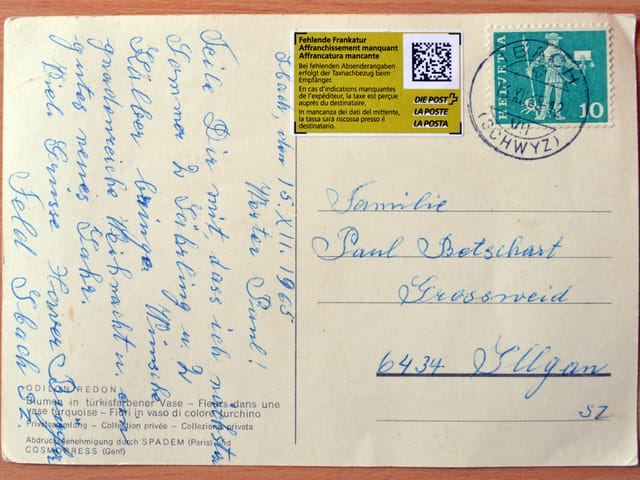 Ibach, den 15. XII. 1965
Werter Paul!
Teile Dir mit, dass ich nächsten
Sommer 2 Jährling u. 2
Kälber bringe. Wünsche
gnadenreiche Weihnacht u. ein
gutes neues Jahr.
Viele Grüsse
Feld Ibach Sz.
Fehlende Frankatur
Affranchissement manquant
Affrancatura mancante
Bei fehlenden Absenderangaben
erfolgt der Taxnachbezug beim
Empfänger.
En cas d'indications manquantes
de l'expéditeur, la taxe est perçue
auprès du destinataire.
In mancanza dei dati del mittente,
la tassa sarà riscossa presso il
destinatario.
DIE POST
LA POSTE
LA POSTA
HELVETIA
10
IBACH
(SCHWYZ)
Familie
Paul Betschart
Grossweid
6434 Illgau
SZ
ODILON REDON
Blumen in türkisfarbener Vase – Fleurs dans une
vase turquoise – Fiori in vaso di colore turchino
Privatsammlung – Collection privée – Collezione privata
Abdruckgenehmigung durch SPADEM (Paris) und
COSMOPRESS (Genf)